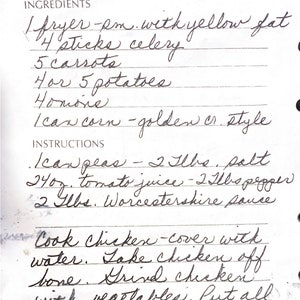 INGREDIENTS
1 fryer - sm. with yellow fat
4 sticks celery
5 carrots
4 or 5 potatoes
4 onions
1 can corn - golden cr. style
INSTRUCTIONS
1 can peas - 2 Tlbs. salt
24 oz. tomato juice - 2 Tlbs pepper
2 Tlbs. Worcestershire sauce
Cook chicken - cover with
water. Take chicken off
bone. Grind chicken
with vegetables. Put all